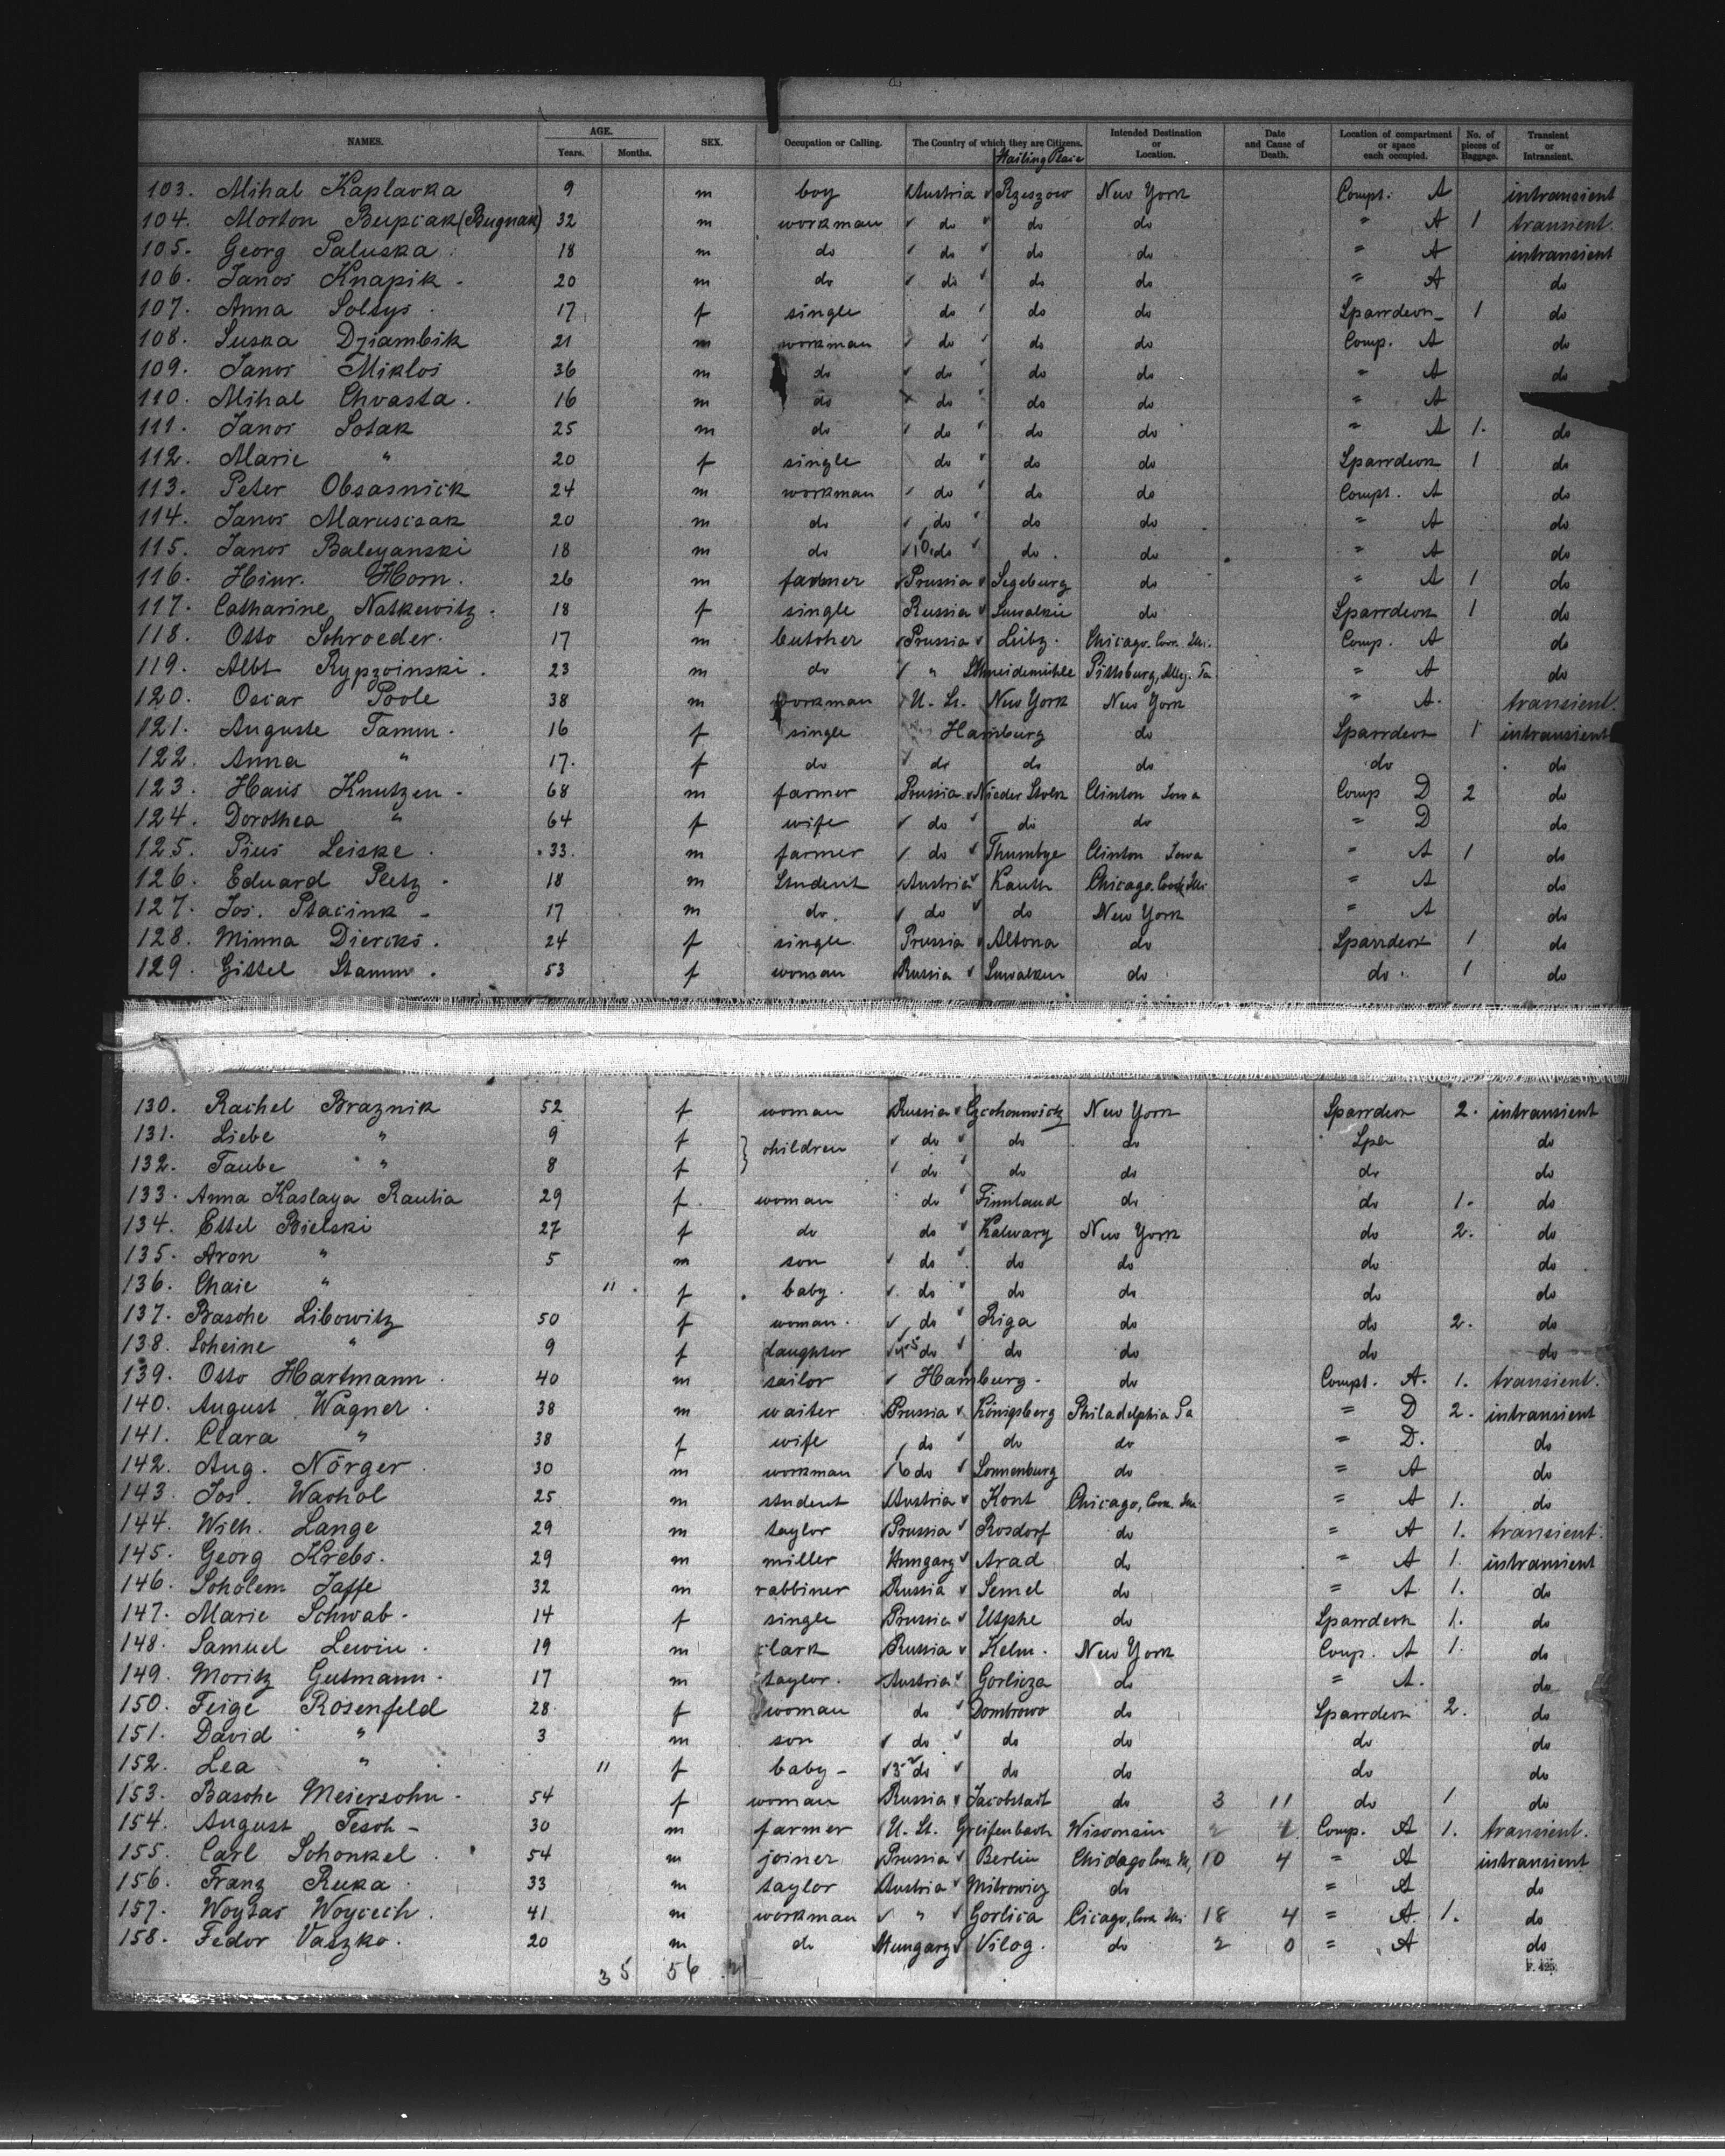 NAMES. AGE. Years. Months. SEX. Occupation or Calling. The Country of which they are Citizens. Intended Destination or Location. Date and Cause of Death. Location of compartment or space each occupied. No. of pieces of Baggage. Transient or Intransient.
103. Mihal Kaplavka 9 m boy Austria Rzeszow New York Compt. A intransient
104. Morton Bupcak (Bugnak) 32 m workman do do do " A 1 transient.
105. Georg Paluska 18 m do do do do " A intransient
106. Janos Knapik 20 m do do do do " A do
107. Anna Soltys 17 f single do do do Sparrdeck 1 do
108. Suska Dziambik 21 m workman do do do Comp. A do
109. Janos Miklos 36 m do do do do " A do
110. Mihal Chvasta. 16 m do do do do " A
111. Janos Sotak 25 m do do do do " A 1. do
112. Marie " 20 f single do do do Sparrdeck 1 do
113. Peter Obsasnick 24 m workman do do do Compt. A do
114. Janos Maruscsak 20 m do do do do " A do
115. Janos Baleyanski 18 m do do do. do " A do
116. Hinr. Horn. 26 m farmer Prussia Segeburg do " A 1 do
117. Catharine Natkewitz. 18 f single Russia Suwalkie do Sparrdeck 1 do
118. Otto Schroeder. 17 m butcher Prussia Lübz. Chicago. Cook. Ill. Comp. A do
119. Albt Rypzoinski. 23 m do " Schneidemühle Pittsburg, Alleg. Pa. " A do
120. Oscar Poole 38 m workman U. St. New York New York " A. transient.
121. Auguste Tamm. 16 f single Hamburg do Sparrdeck 1 intransient
122. Anna " 17. f do do do do do do
123. Hans Knutzen - 68 m farmer Prussia Nieder Clinton Iowa Comp D 2 do
124. Dorothea " 64 f wife do do do " D do
125. Pius Leiske. 33. m farmer do Thumbye Clinton Iowa " A 1 do
126. Eduard Pletz - 18 m Student Austria Kauth Chicago. Cook Ill. " A do
127. Jos. Ptacink - 17 m do. do do New York " A do
128. Minna Diercks. 24 f single. Prussia Altona do Sparrdeck 1 do
129. Gittel Stamm. 53 f woman Russia Suwalken do do 1 do
130. Rachel Braznik 52 f woman Russia New York Sparrdeck 2. intransient
131. Liebe " 9 f } children do do do Spar do
132. Taube " 8 f do do do do do
133. Anna Kaslaya Rautia 29 f. woman do Finnland do do 1. do
134. Ettel Bielski 27 f do do Kalwary New York do 2. do
135. Aron " 5 m son do do do do do
136. Chaie " 11. f baby. do do do do do
137. Basche Libowitz 50 f woman. do Riga do do 2. do
138. Scheine " 9 f daughter do do do do do
139. Otto Hartmann. 40 m sailor Hamburg. do Compt. A. 1. transient.
140. August Wagner. 38 m waiter Prussia Königsberg Philadelphia Pa " D 2. intransient
141. Clara " 38 f wife do do do " D. do
142. Aug. Nörger 30 m workman do Sonnenburg do " A do
143. Jos. Wachol 25 m student Austria Kont Chicago, Cook. Ill. " A 1. do
144. Wilh. Lange 29 m taylor Prussia Rosdorf do " A 1. transient.
145. Georg Krebs. 29 m miller Hungary Arad do " A 1. intransient
146. Scholem Jaffe 32 m rabbiner Russia Semel do " A 1. do
147. Marie Schwab. 14 f single Prussia Usphe do Sparrdeck 1. do
148. Samuel Lewin. 19 m clark Russia Kelm. New York Comp. A 1. do
149. Moritz Gutmann. 17 m taylor. Austria Gorlicza do " A. do
150. Feige Rosenfeld 28 f woman do Dombrowo do Sparrdeck 2. do
151. David " 3 m son do do do do do
152. Lea " 11 f baby - do do do do do
153. Basche Meiersohn. 54 f woman Russia Jacobstadt do 3 11 do 1 do
154. August Tesch - 30 m farmer U. St. Greifenbach Wisconsin Comp. A 1. transient.
155. Carl Schonkel. 54 m joiner Prussia Berlin Chicago Cook Ill. 10 4 " A intransient
156. Franz Ruka. 33 m taylor Austria Mitrowicz do " A do
157. Woytas Woyciech. 41 m workman " Gorlica Cicago, Cook Ill. 18 4 " A. 1. do
158. Fedor Vaszko. 20 m do Hungary Vilog. do 2 0 " A do
35 56
F. 425.